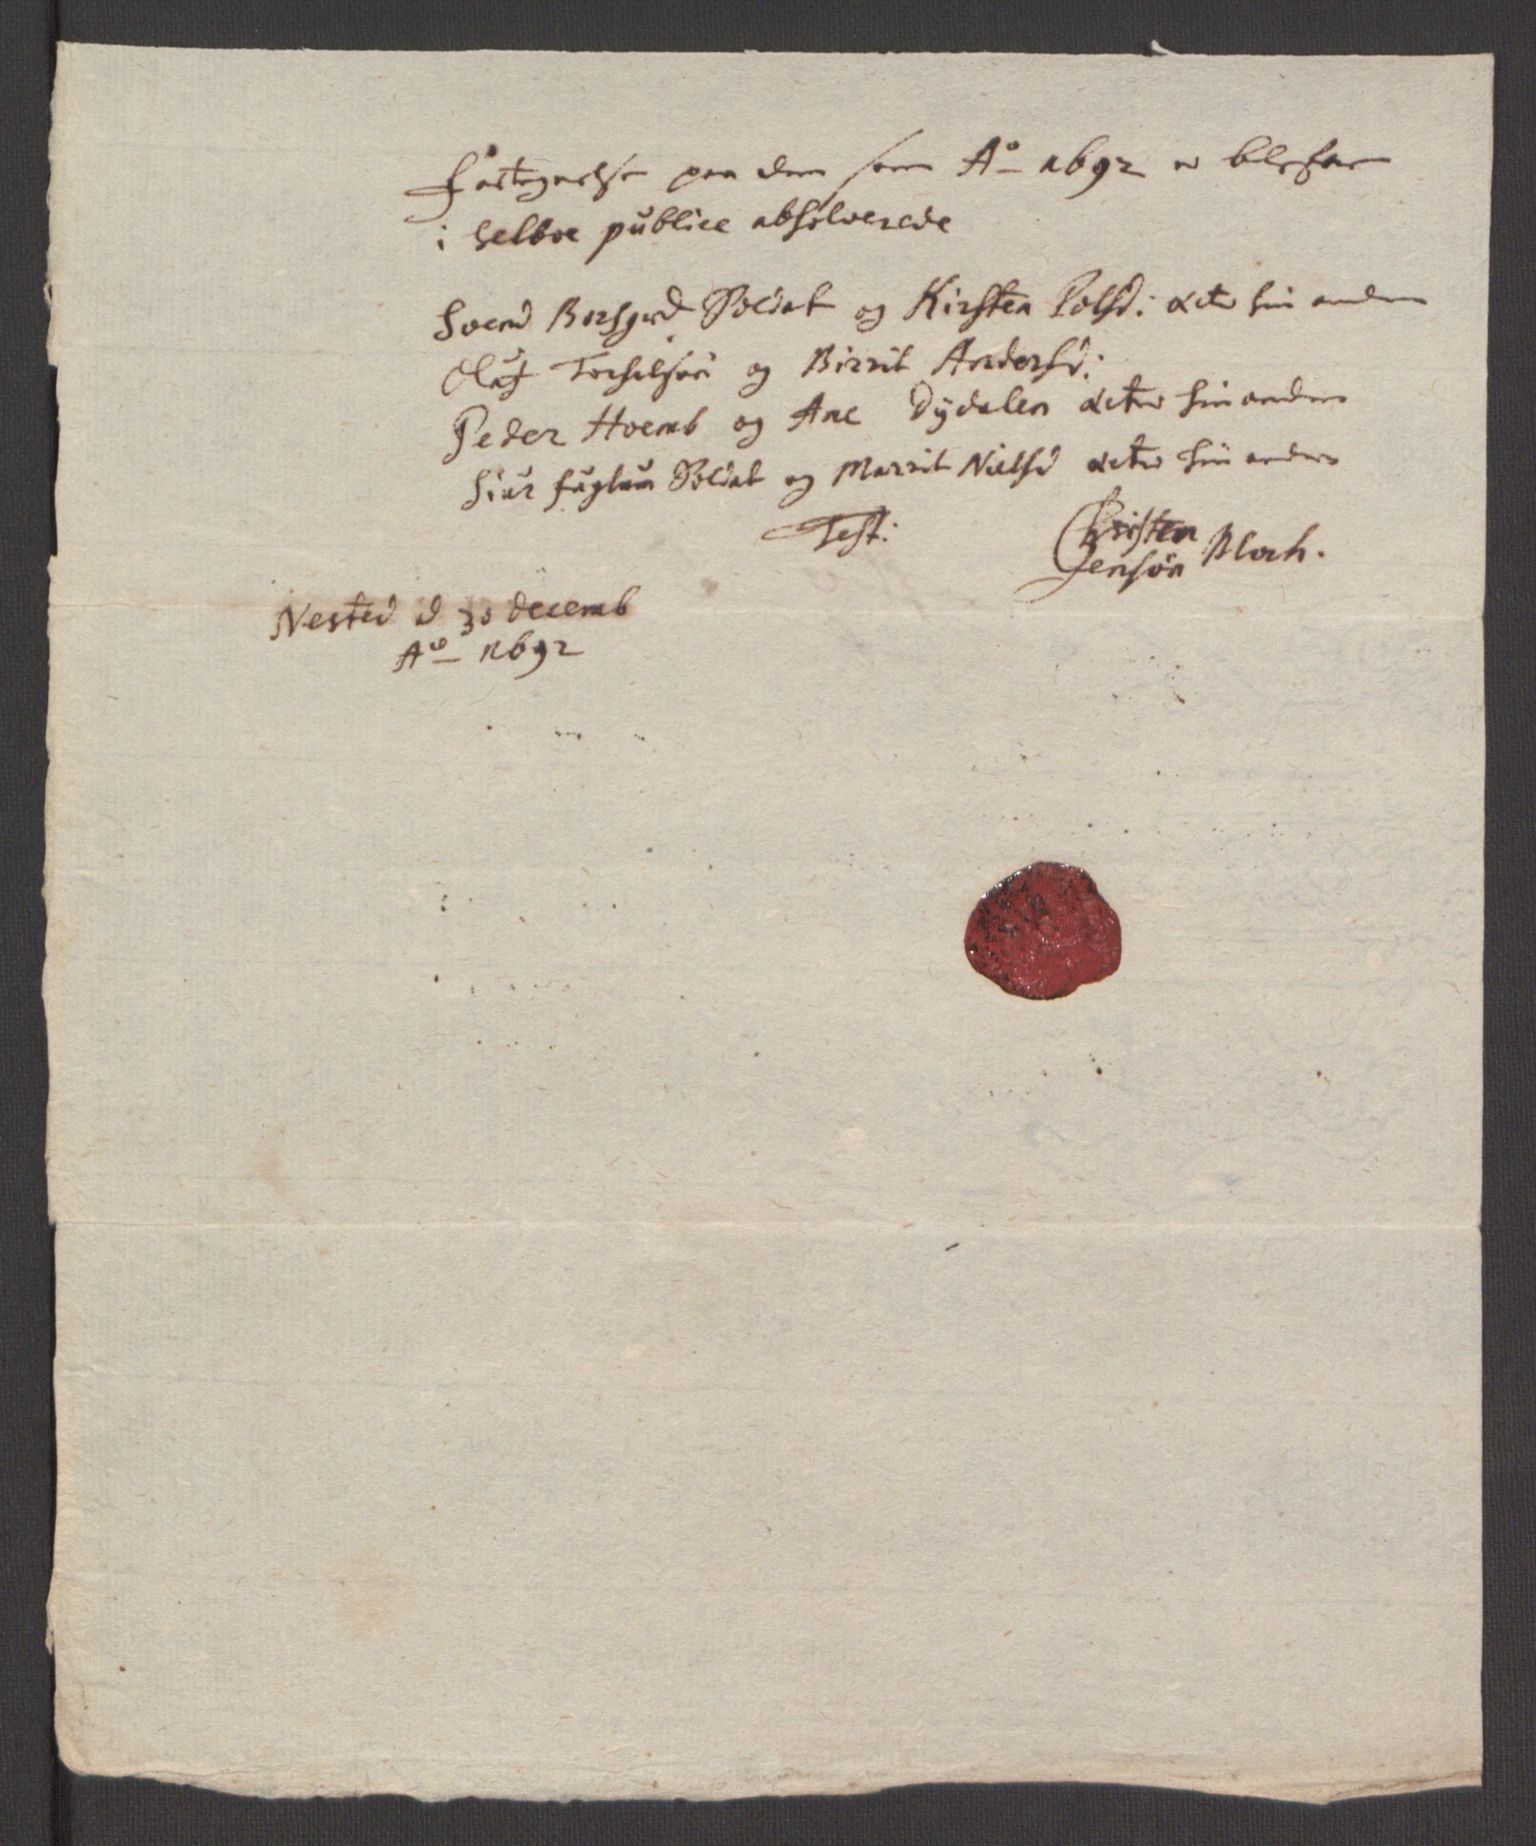 Fortegnelse paa dem som Ao 1692 er blefne
i Selboe publice absolverede
Svend Borsgerd Soldat og Kirsten Polsd: acter hin anden
Oluf Torchelsøn og Birrit Andersd:
Peder Hvemb og Ane Dÿdalen acter hin anden
Siur fuglum Soldat og Marrit Nielsd acter hin anden
Test:
Christen
Jensøn Bloch.
Nested d 30 decemb
Ao 1692